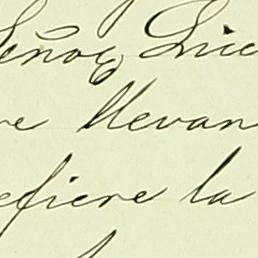 Señor Luc
re llevan
efiere la